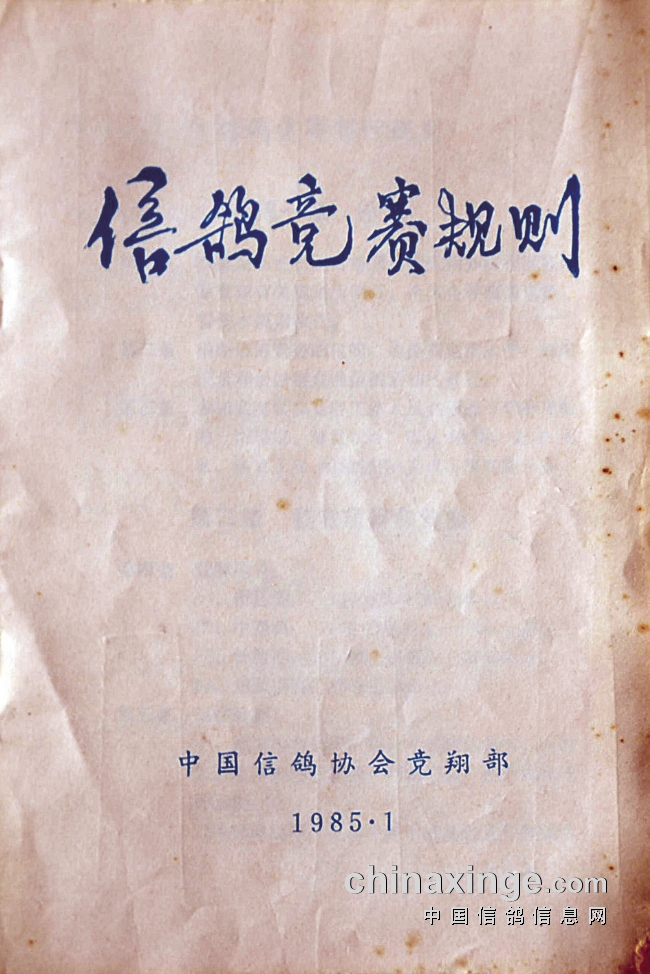 信鸽竞赛规则
中国信鸽协会竞翔部
1985·1
chinaxinge.com
中国信鸽信息网